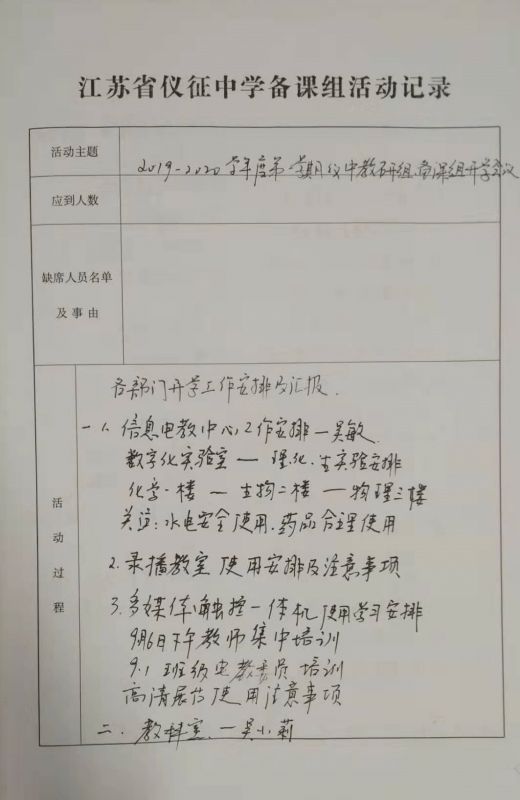 江苏省仪征中学备课组活动记录
活动主题
2019-2020学年度第一学期仪中教研组、备课组开学会议
应到人数
缺席人员名单
及事由
活动过程
各部门开学工作安排及汇报.
一 1. 信息电教中心工作安排—吴敏
数字化实验室 — 理.化.生实验安排
化学一楼 — 生物二楼 — 物理三楼
关注:水电安全使用.药品合理使用
2. 录播教室使用安排及注意事项
3. 多媒体触控一体机使用学习安排
9月6日下午教师集中培训
9.1 班级电教委员培训
高清展台使用注意事项
二. 教科室.—吴小莉